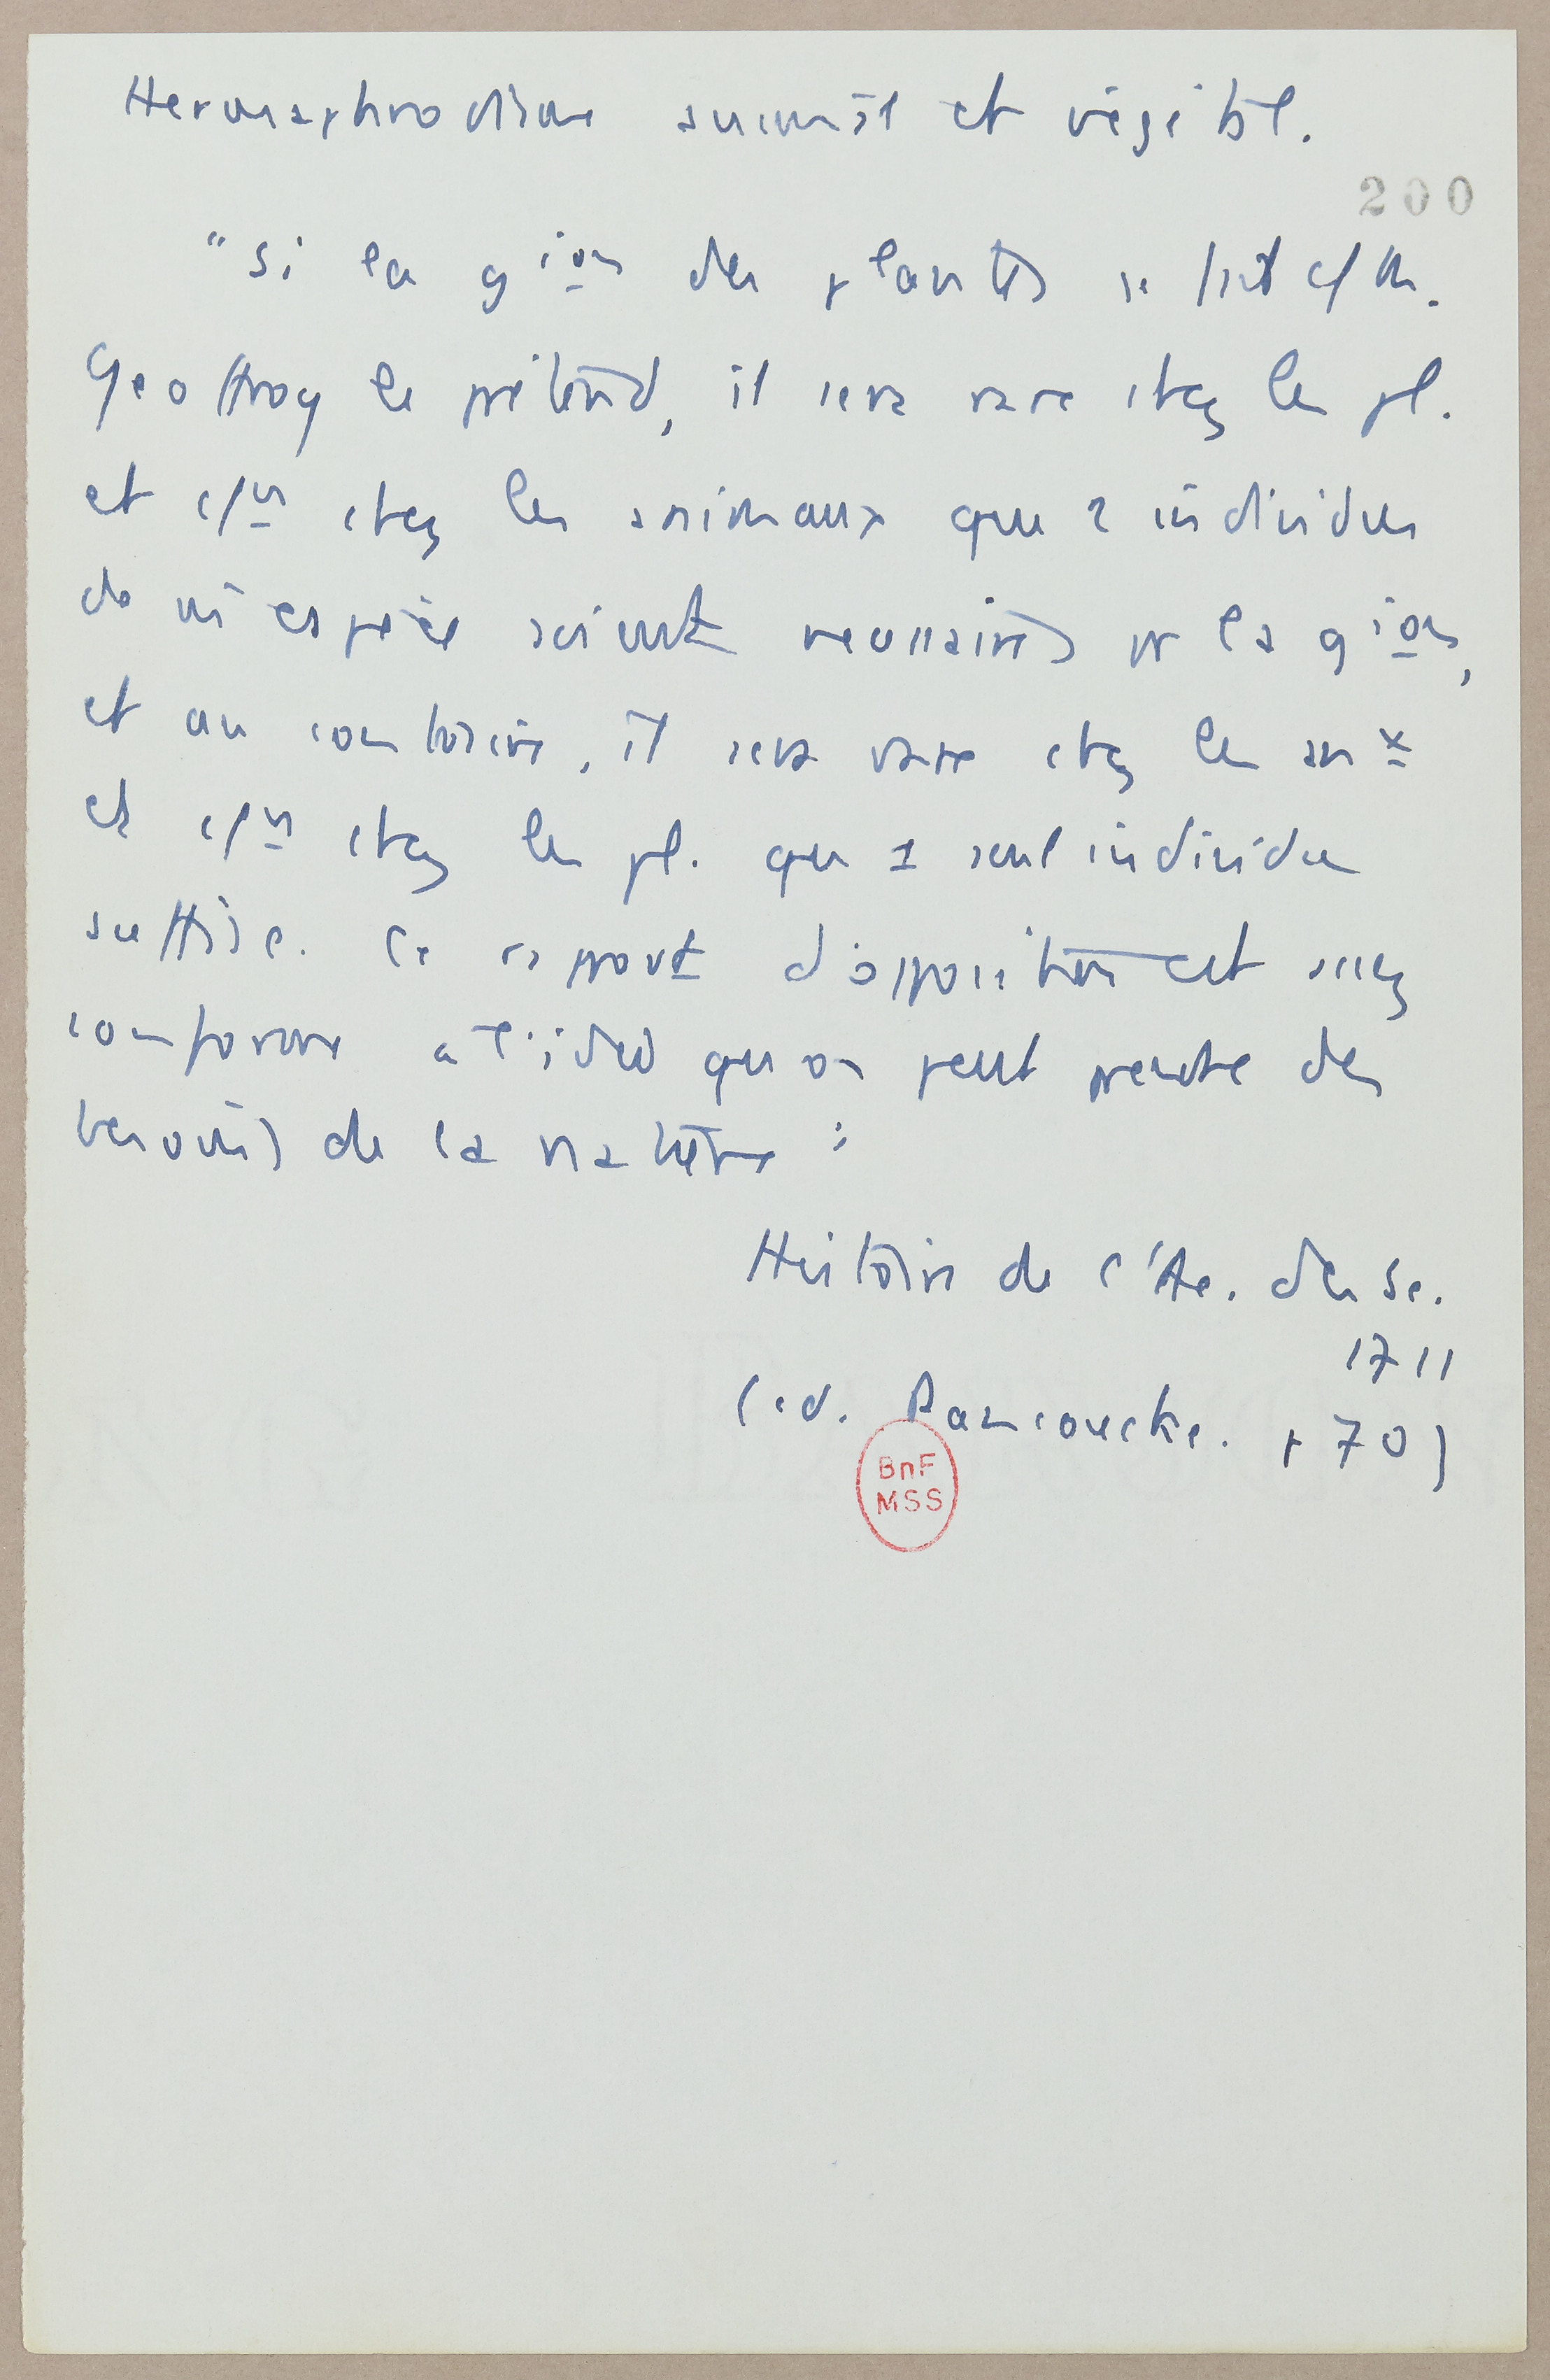 Hermaphrodisme animal et végétal.
200
"Si la g ion des plantes se fait c/ M.
Geoffroy le prétend, il sera rare chez les pl.
et c/un chez les animaux que 2 individus
de m espèce soient nécessaires pr la g ion,
et au contraire, il sera rare chez les an x
et c/un chez les pl. qu 1 seul individu
suffise. Ce rapport d'opposition est assez
conforme à l'idée qu on peut prendre des
besoins de la nature"
Histoire de l'Ac. des Sc.
1711
(éd. Panckoucke. p 70)
BnF
MSS